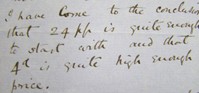 I have come to the conclusion
that 24 pp is quite enough
to start with and that
4d is quite high enough
price.